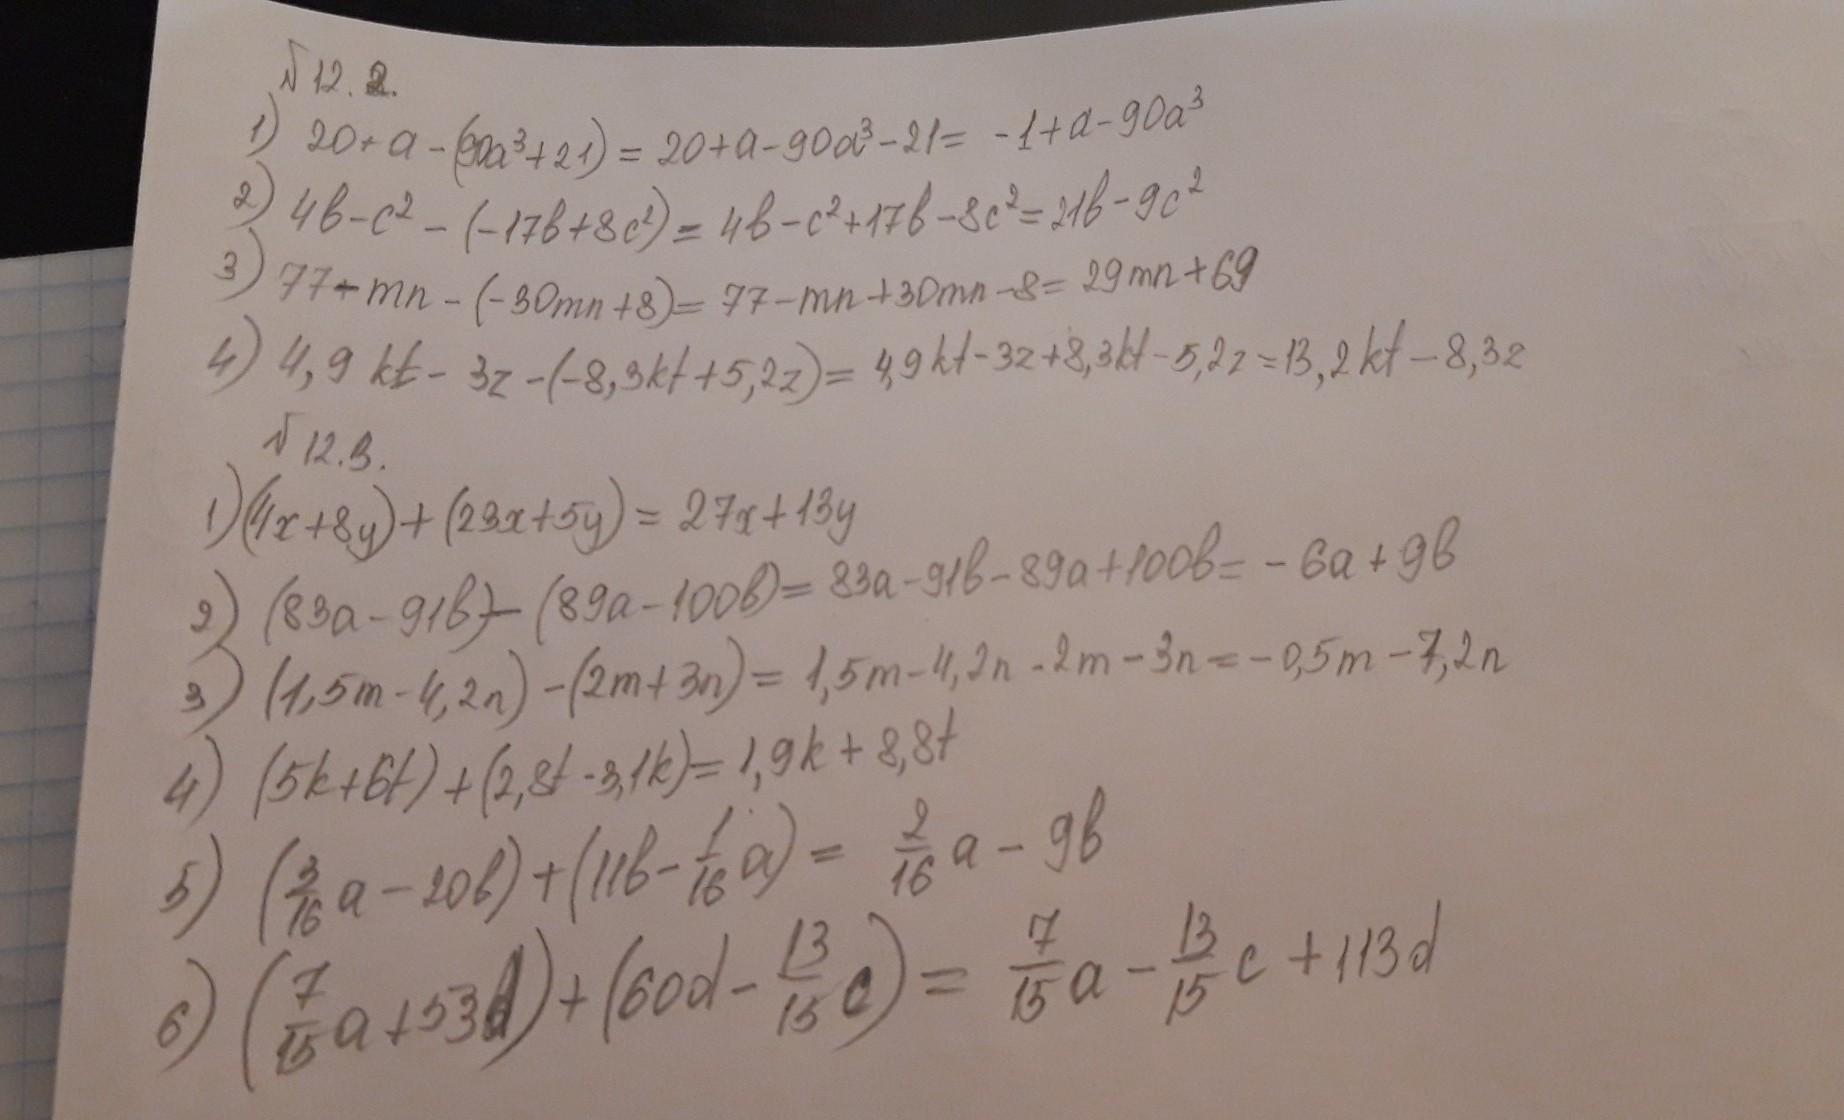 № 12.2.
1) 20+a-(90a³+21)=20+a-90a³-21= -1+a-90a³
2) 4b-c²-(-17b+8c²)=4b-c²+17b-8c²=21b-9c²
3) 77-mn-(-30mn+8)=77-mn+30mn-8=29mn+69
4) 4,9kt-3z-(-8,3kt+5,2z)=4,9kt-3z+8,3kt-5,2z=13,2kt-8,3z
№ 12.3.
1) (4x+8y)+(23x+5y)=27x+13y
2) (83a-91b)-(89a-100b)=83a-91b-89a+100b=-6a+9b
3) (1,5m-4,2n)-(2m+3n)=1,5m-4,2n-2m-3n=-0,5m-7,2n
4) (5k+6t)+(2,8t-3,1k)=1,9k+8,8t
5) (3/16a-20b)+(11b-1/16a)=2/16a-9b
6) (7/15a+53d)+(60d-13/15c)=7/15a-13/15c+113d